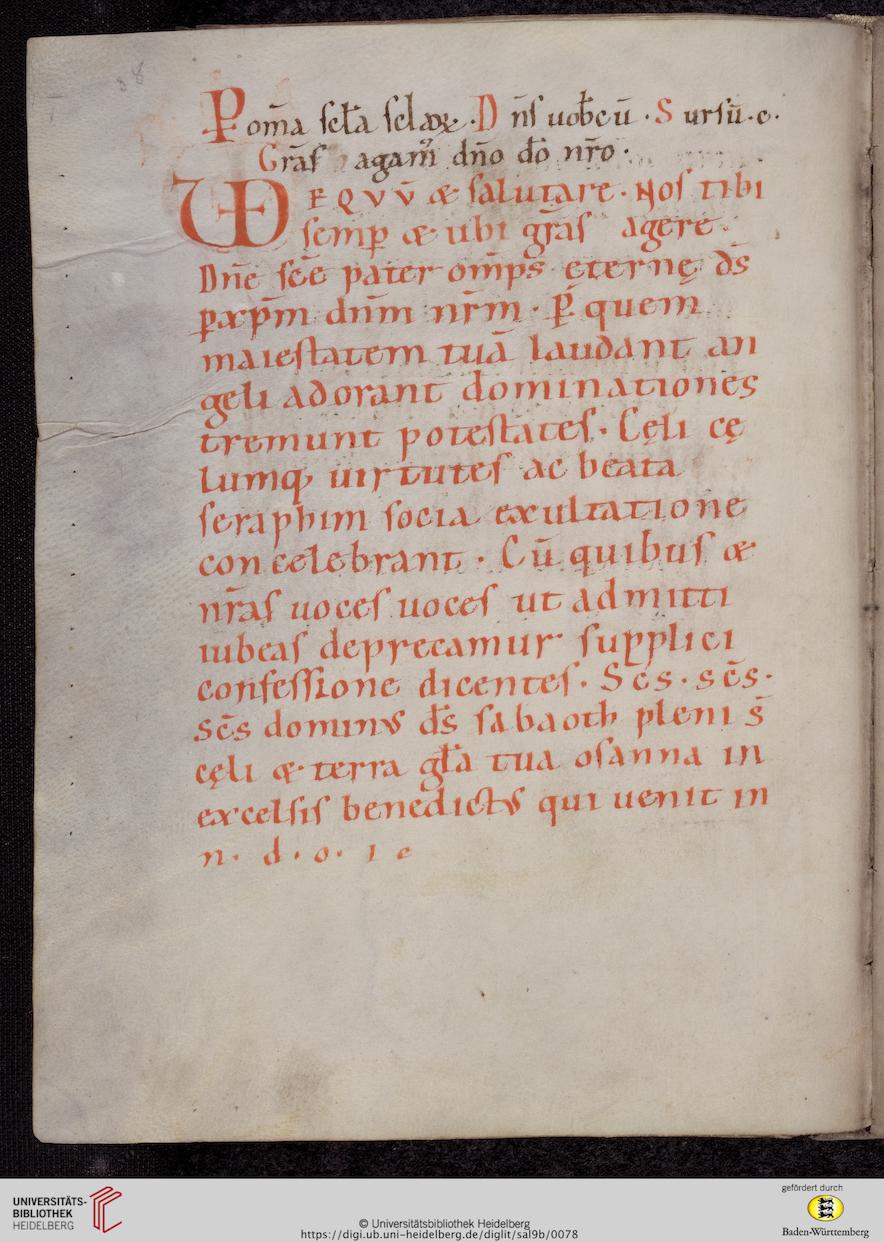 38
P om̄a sc̄la sclaꝝ. D n̄s uob̄cū. S ursū.c.
Gr̄as agam̄ dn̄o dō nr̄o.
UD E Q V V̄ & salutare. Nos tibi
semꝑ & ubi gr̄as agere.
Dn̄e sc̄e pater om̄ps̄ ęternę ds̄
ꝑ xp̄m dn̄m nr̄m. Ꝑ quem
maiestatem tuā laudant an
geli adorant dominationes
tremunt potestates. Cęli cę
lumq; uirtutes ac beata
seraphim socia exultatione
concelebrant. Cū quibus &
nr̄as uoces uoces ut admitti
iubeas deprecamur supplici
confessione dicentes. Sc̄s. sc̄s.
sc̄s dominus ds̄ sabaoth pleni s̄
cęli & terra gl̄a tua osanna in
excelsis benedictus qui uenit in
n. d. o. i e
UNIVERSITÄTS-
BIBLIOTHEK
HEIDELBERG
© Universitätsbibliothek Heidelberg
https://digi.ub.uni-heidelberg.de/diglit/sal9b/0078
gefördert durch
Baden-Württemberg